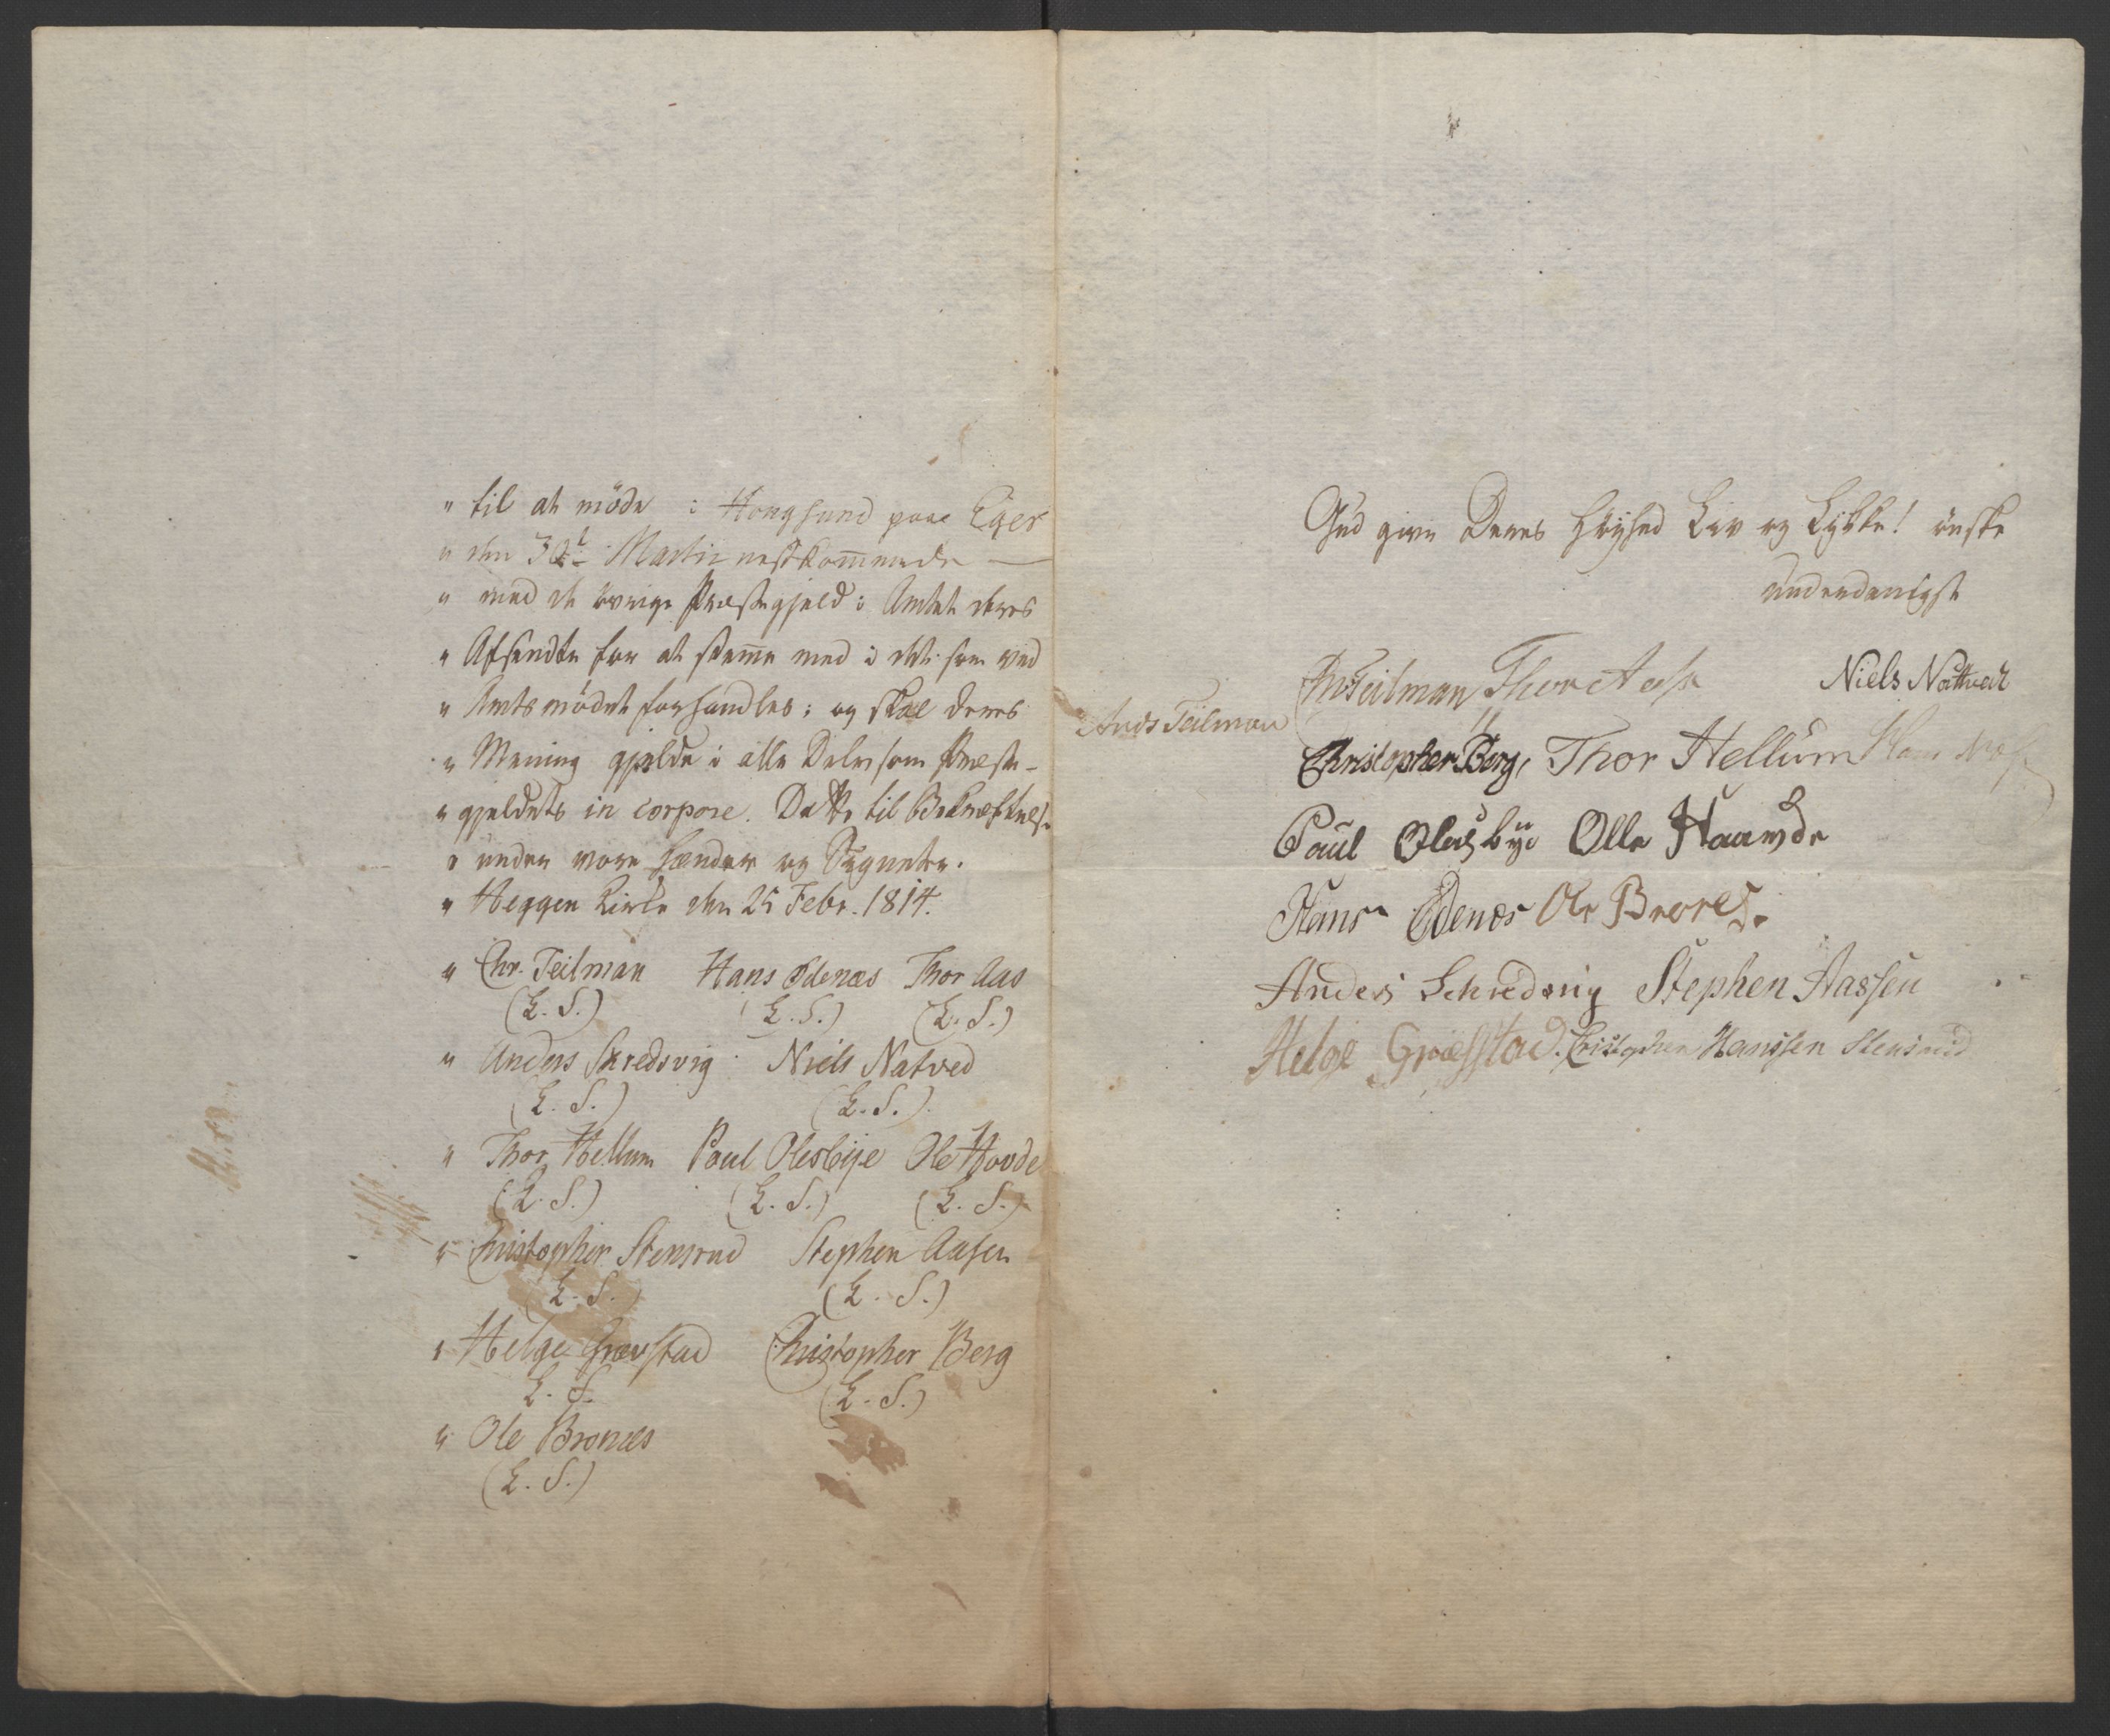 " til at møde i Hougsund paa Eger
" den 30t Martii nestkommende —
" med de øvrige Præstegjeld i Amtet deres
" Afsendte for at stemme med i det som ved
" Amtsmødet forhandles; og skal deres
" Mening gjelde i alle Dele som Præste-
" gjeldets in corpore. Dette til Bekræftelse
" under vore Hænder og Signeter.
" Heggen Kirke den 25 Febr. 1814.
" Chr. Teilman Hans Ødenæs Thor Aas
(L. S.) (L. S.) (L. S.)
" Anders Skredsvig Niels Natved
(L. S.) (L. S.)
" Thor Hellum Paul Olesbye Ole Hovde
(L. S.) (L. S.) (L. S.)
" Christopher Stensrud Stephen Aasen
(L. S.) (L. S.)
" Helge Grævstad Christopher Berg
L. S. (L. S.)
" Ole Bronæs
(L. S.)
Gud give Deres Høyhed Liv og Lykke! ønske
underdanigst
Chr Teilman Thor Aass Niels Nattvedt
Ands Teilman
Christopher Berg, Thor Hellum Hans
Paul Olesbye Olle Haavde
Hans Ødenæs Ole Brones.
Anders Schredsvig Stephen Aassen
Helge Græfstad. Cristopher Hanssen Stensrud